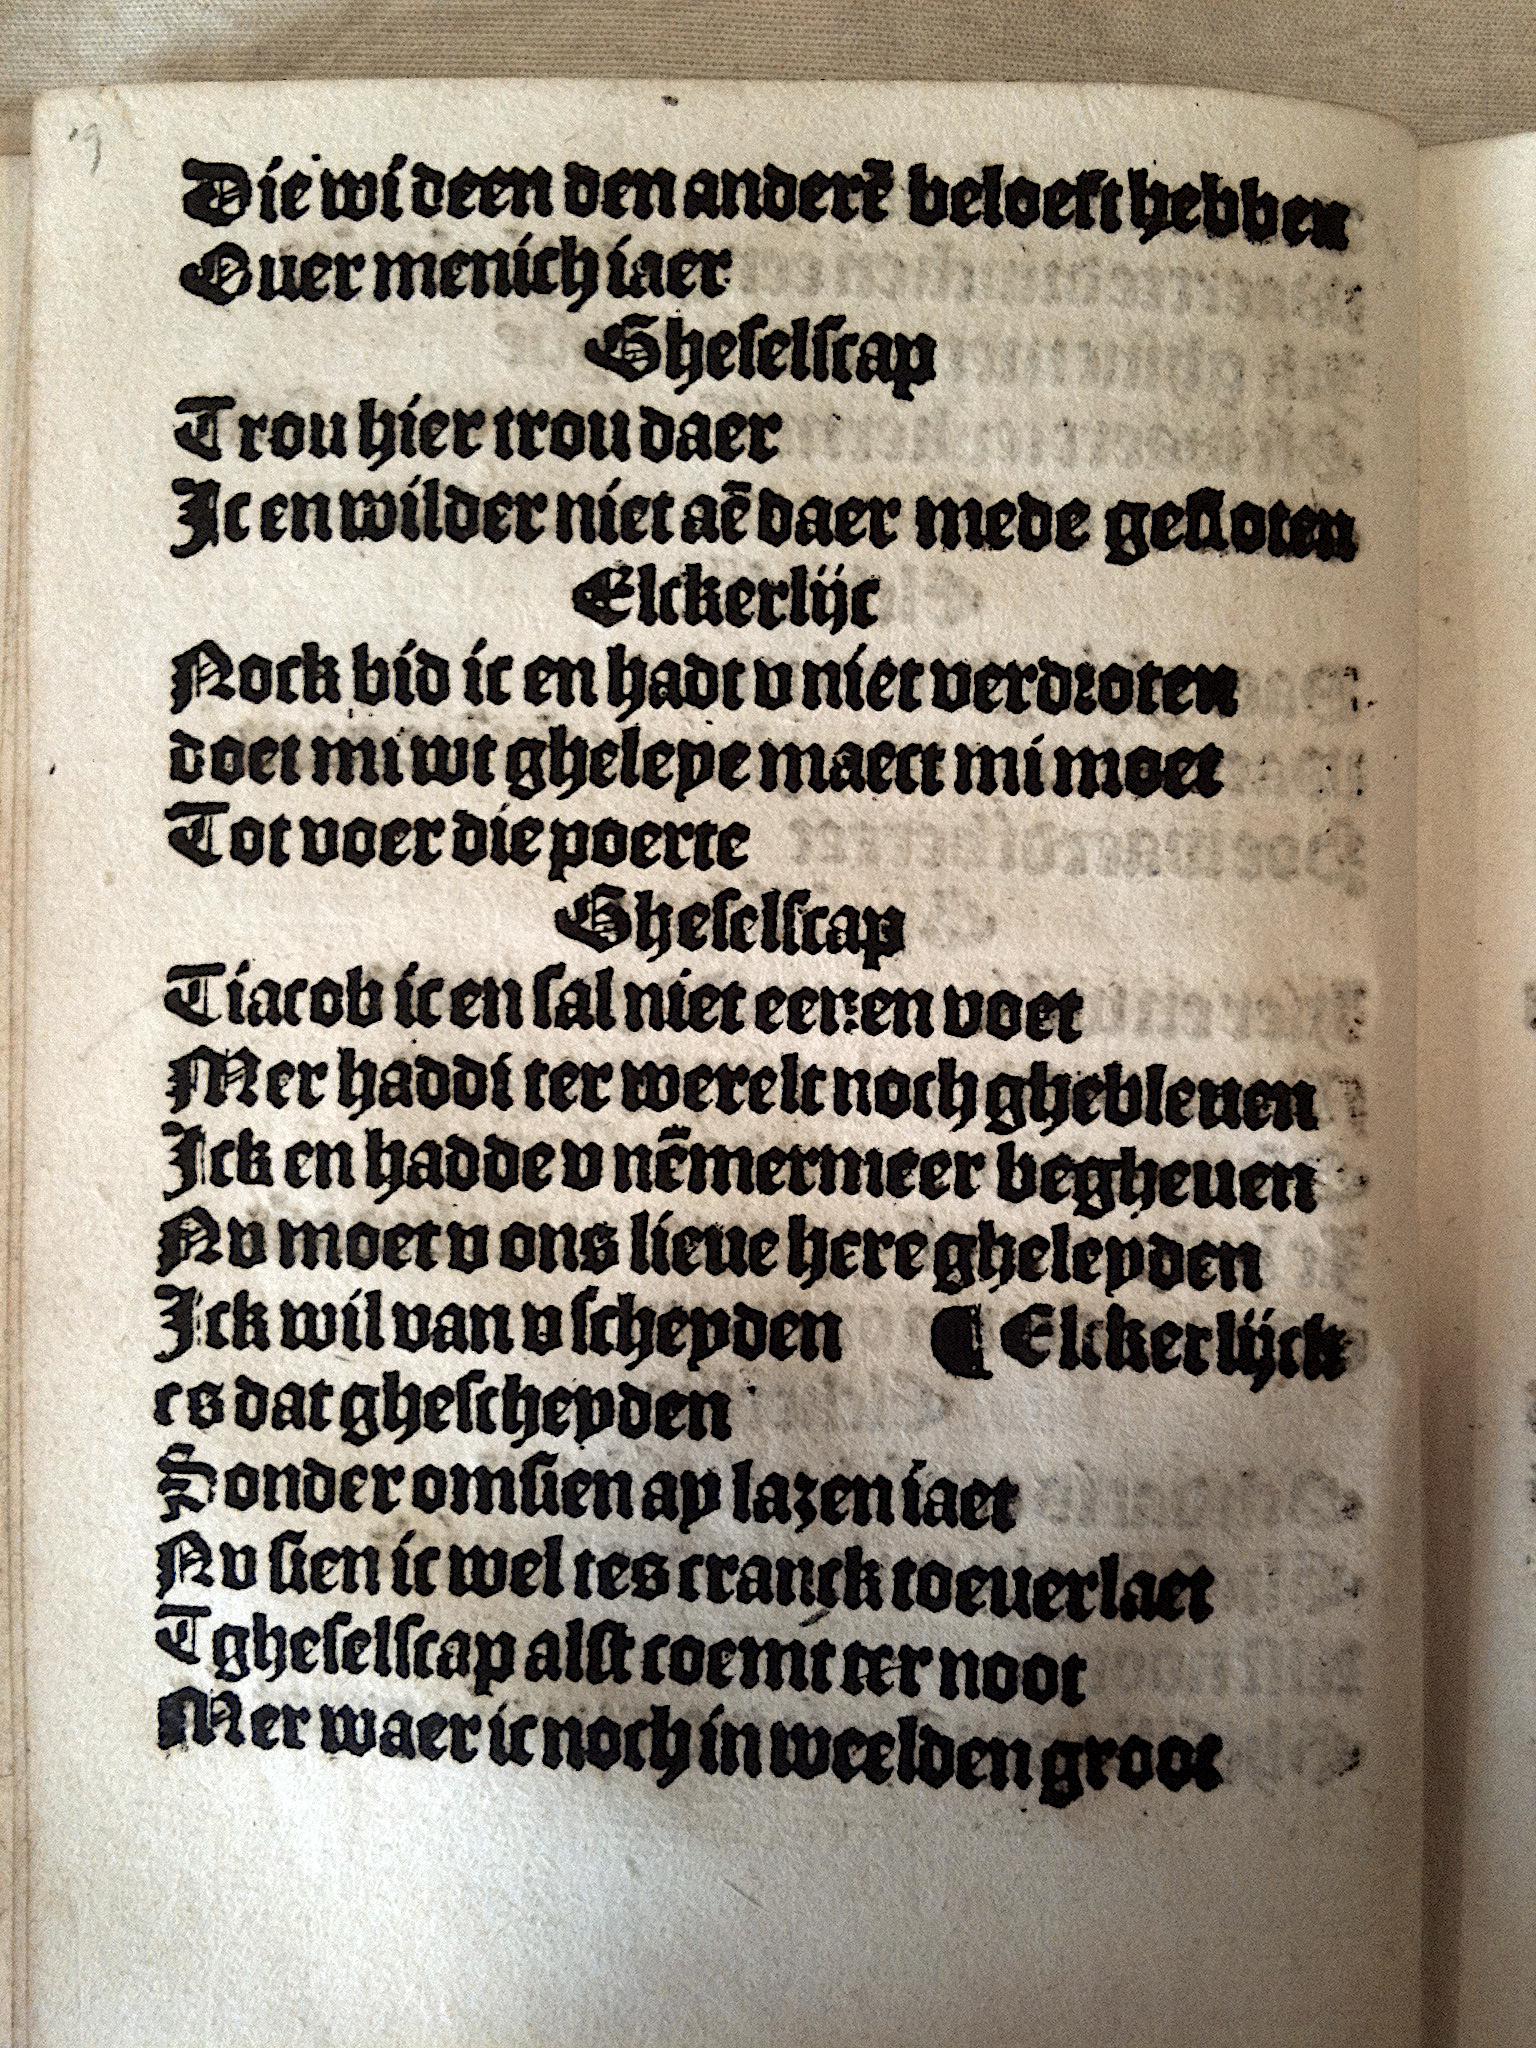 Die wi deen den anderē beloeft hebben
Ouer menich iaer
Gheselscap
Trou hier trou daer
Ic en wilder niet aē daer mede gesloten
Elckerlijc
Nock bid ic en hadt v niet verdroten
doet mi wt gheleye maect mi moet
Tot voer die poerte
Gheselscap
Tiacob ic en sal niet eenen voet
Mer haddi ter werelt noch ghebleuen
Ick en hadde v nēmermeer begheuen
Nv moet v ons lieue here gheleyden
Ick wil van v scheyden ¶ Elckerlijck
es dat ghescheyden
Sonder omsien ay lazen iaet
Nv sien ic wel tes cranck toeuerlaet
Tgheselscap alst coemt ter noot
Mer waer ic noch in weelden groot